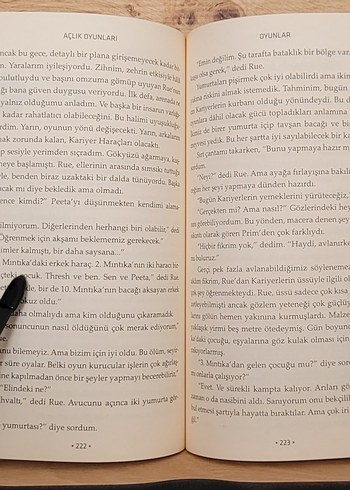 AÇLIK OYUNLARI
ancak bu gece, detaylı bir plana girişemeyecek kadar
Yaralarım iyileşiyordu. Zihnim, zehrin etkisiyle
bulutluydu ve başını omzuma gömüp uyuyan Rue'nun
bana güven duygusu veriyordu. İlk defa, arenada
yalnız olduğumu anladım. Ve başka bir insanın
kadar rahatlatıcı olabileceğini. Bu halimi
Yarın, oyunun yönü değişecekti. Yarın, arkalarını
zorunda kalan, Kariyer Haraçları olacaktı.
sesiyle yerimden sıçradım. Gökyüzü ağarmaya,
başlamıştı. Rue, ellerinin arasında sımsıkı
benden biraz uzaktaki bir dalda tünüyordu. Başka
mı diye bekledik ama olmadı.
kimdi?" Peeta'yı düşünmekten kendimi
Diğerlerinden herhangi biri olabilir," dedi
"Öğrenmek için akşamı beklememiz gerekecek."
kimler kalmıştı, bir daha saysana..."
Mıntıka'daki erkek haraç. 2. Mıntıka'nın iki haracı
çocuk. Thresh ve ben. Sen ve Peeta," dedi Rue.
bir de 10. Mıntıka'nın bacağı aksayan erkek
dokuz olduk."
daha olmalıydı ama kim olduğunu çıkaramadık.
sonuncunun nasıl öldüğünü çok merak ediyorum,"
bilemeyiz. Ama bizim için iyi oldu. Bu ölüm,
süre oyalar. Belki oyun kurucular işlerin çok
kapılmadan önce bir şeyler yapmayı becerebiliriz,"
"Elindeki ne?"
dedi Rue. Avucunu açınca iki yumurta
yumurtası?" diye sordum.
• 222 •
OYUNLAR
"Emin değilim. Şu tarafta bataklık bir bölge var,
olsa gerek," dedi Rue.
Yumurtaları pişirmek çok iyi olabilirdi ama ikimiz
riskini almak istemedik. Tahminim, bugün
Kariyerlerin kurbanı olduğu yönündeydi. Bu da
dâhil olacak gücü topladıkları anlamına
birer yumurta içip tavşan bacağı ve
yedik. Bu her şartta iyi sayılabilecek bir
Sırt çantamı takarken, "Bunu yapmaya hazır mı
"Neyi?" dedi Rue. Ama ayağa fırlayışına bakılırsa
her şeyi yapmaya dünden hazırdı.
"Bugün Kariyerlerin yemeklerini yürüteceğiz,"
"Gerçekten mi? Ama nasıl?" Gözlerindeki
görebiliyordum. Bu yönden, macera denen şeyi
olarak gören Prim'den çok farklıydı.
"Hiçbir fikrim yok," dedim. "Haydi, avlanırken
buluruz."
Gerçi pek fazla avlanabildiğimiz söylenemezdi
fikrim, Rue'dan Kariyerlerin üssüyle ilgili
etmekti. Rue, üssü sadece çok kısa
ancak gözlem yeteneği çok
gölün hemen yakınına kurmuşlardı.
yirmi beş metre ötedeymiş. Gün boyunca
çocuğu, eşyalarına göz kulak olması için
"3. Mıntıka'dan gelen çocuğu mu?" diye
onlarla çalışıyor?"
"Evet. Ve sürekli kampta kalıyor. Arıları
o da nasibini aldı. Sanıyorum onu
etmesi şartıyla hayatta bıraktılar. Ama çok iri
• 223 •